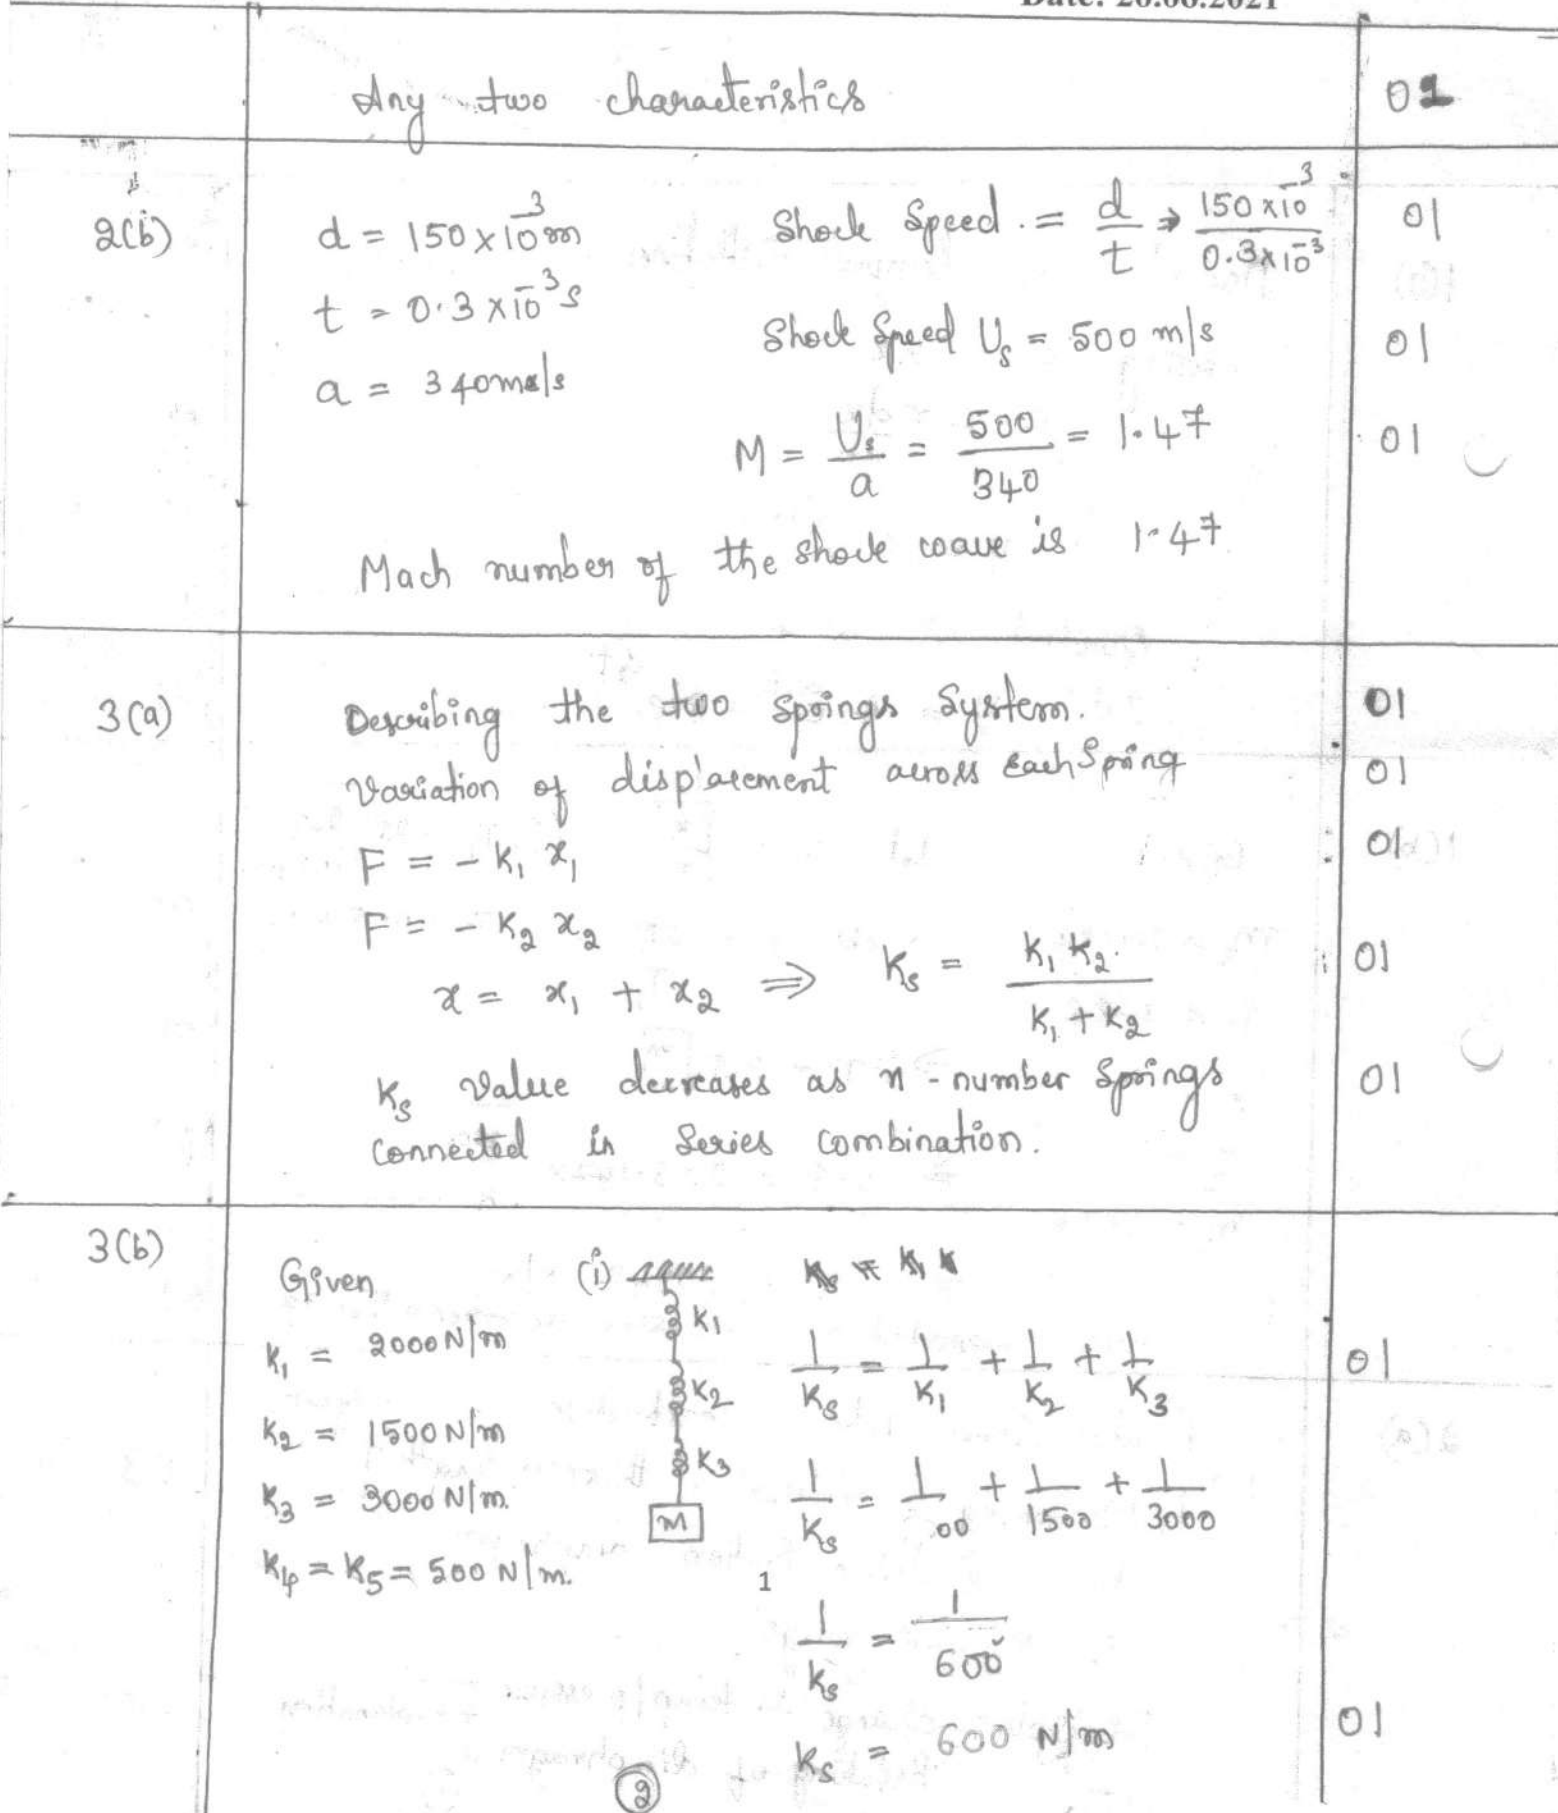 Date: 26.06.2021
Any two characteristics 01
2(b) d = 150 x 10⁻³ m Shock Speed = d/t ⇒ 150 x 10⁻³ / 0.3 x 10⁻³ 01
t = 0.3 x 10⁻³ s
Shock Speed Uₛ = 500 m/s 01
a = 340 m/s
M = Uₛ/a = 500/340 = 1.47 01
Mach number of the shock wave is 1.47
3(a) Describing the two springs System. 01
Variation of displacement across each Spring 01
F = - K₁ x₁ 01
F = - K₂ x₂
x = x₁ + x₂ ⇒ Kₛ = K₁ K₂ / K₁ + K₂ 01
Kₛ value decreases as n - number Springs 01
connected in Series combination.
3(b) Given (i)
K₁
K₁ = 2000 N/m 1/Kₛ = 1/K₁ + 1/K₂ + 1/K₃ 01
K₂
K₂ = 1500 N/m
K₃
K₃ = 3000 N/m. 1/Kₛ = 1/00 + 1/1500 + 1/3000
M
K₄ = K₅ = 500 N/m.
1
1/Kₛ = 1/600
Kₛ = 600 N/m 01
2